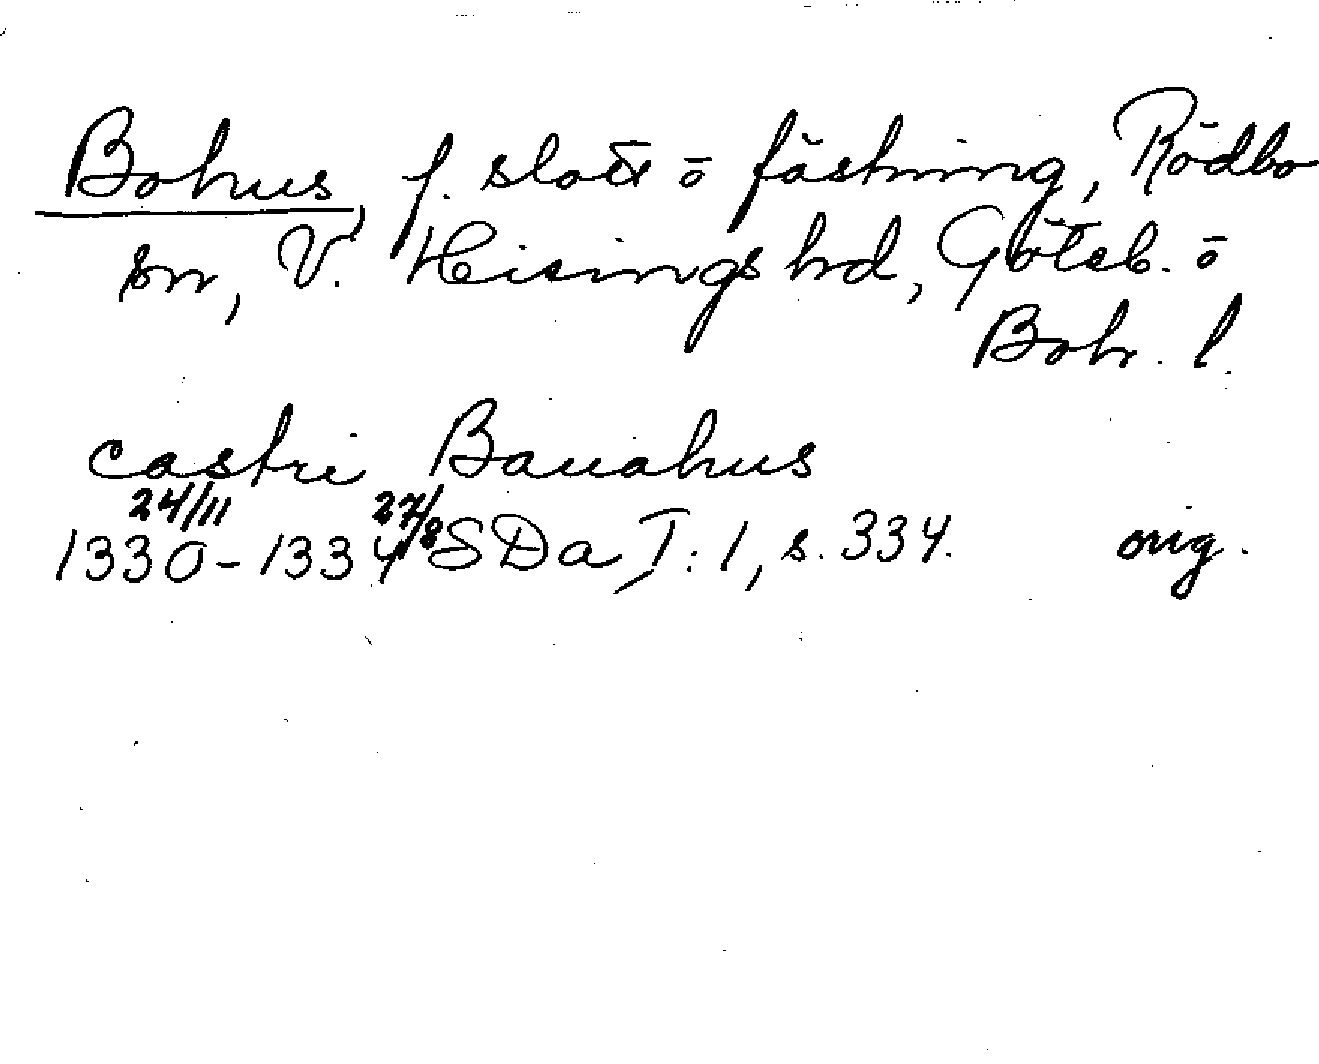 Bohus, f. slott ö fästning, Rödbo
sn, V. Hisings hd, Göteb. ö
Boh. l.
castri Bauahus
24/11 27/8
1330-1334 SDa I:1, s. 334. orig.